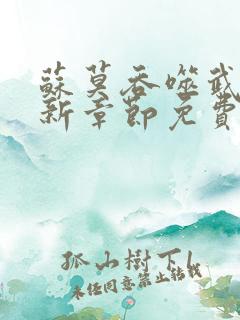 蘇莫吞噬武
新章節免費
孤山樹下
未經同意禁止轉載